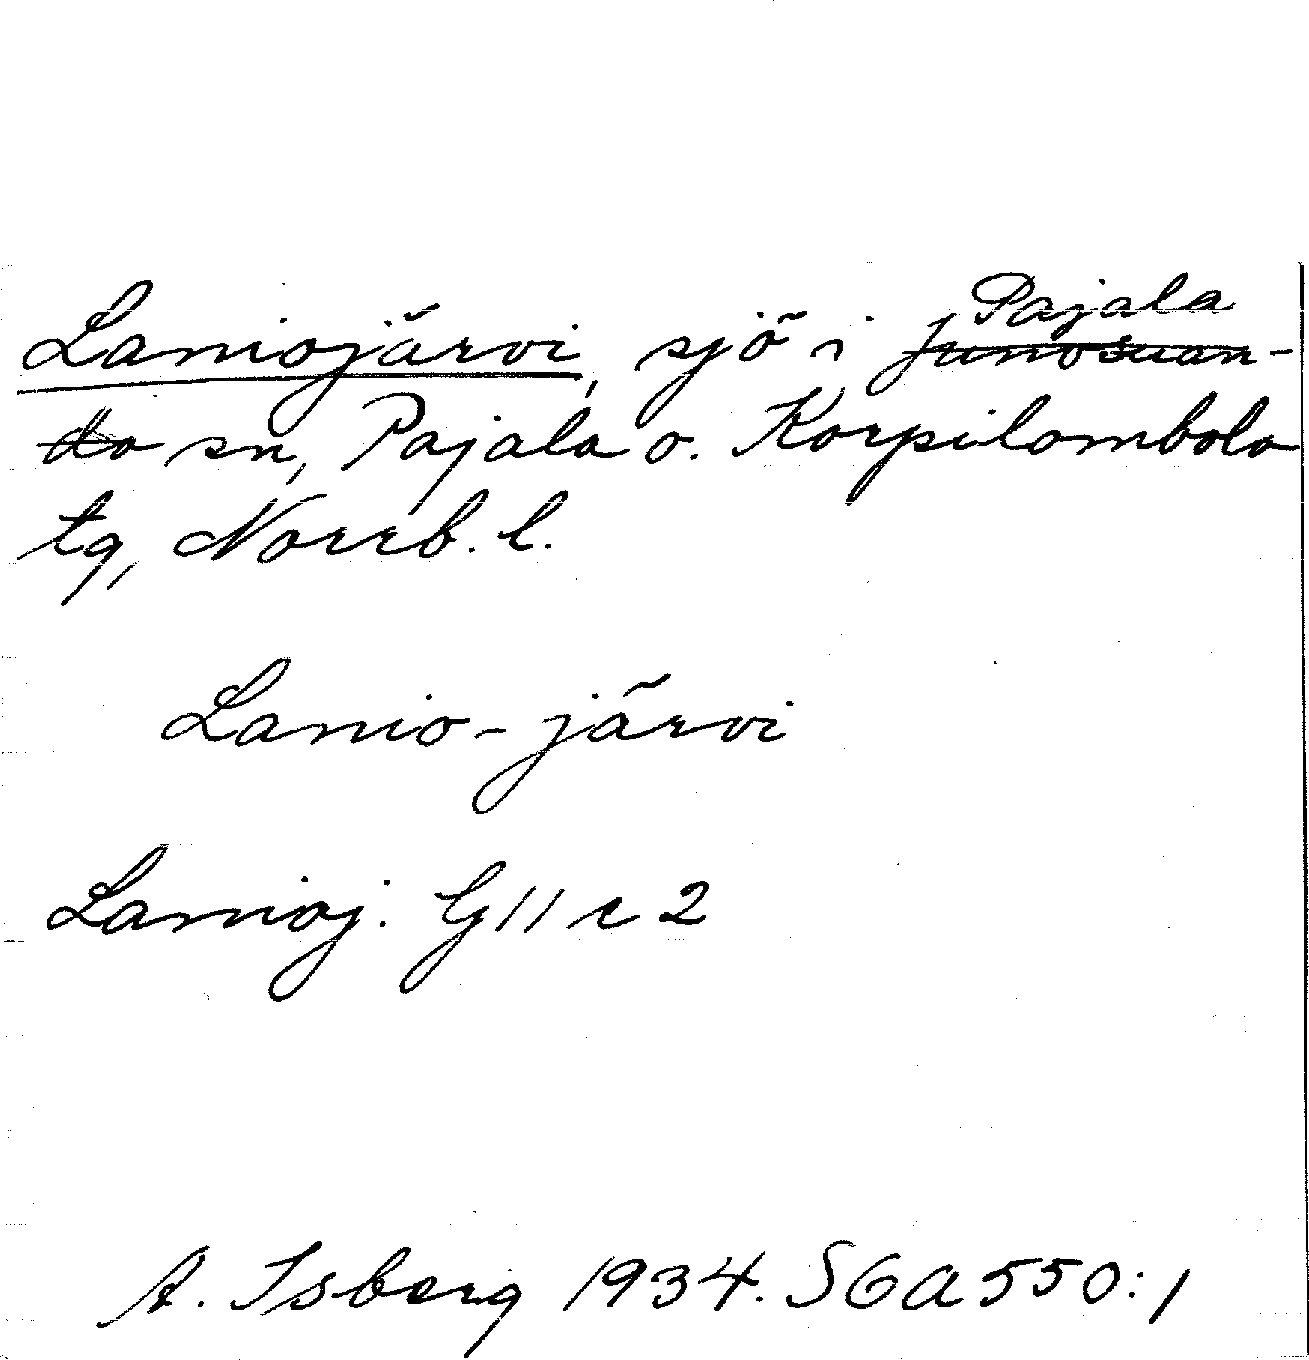 Pajala
Laniojärvi, sjö i Junosuan-
do sn, Pajala o. Korpilombolo
tg, Norrb. l.
Lanio-järvi
Lanioj. G11 c 2
A. Isberg 1934. SGA 550:1